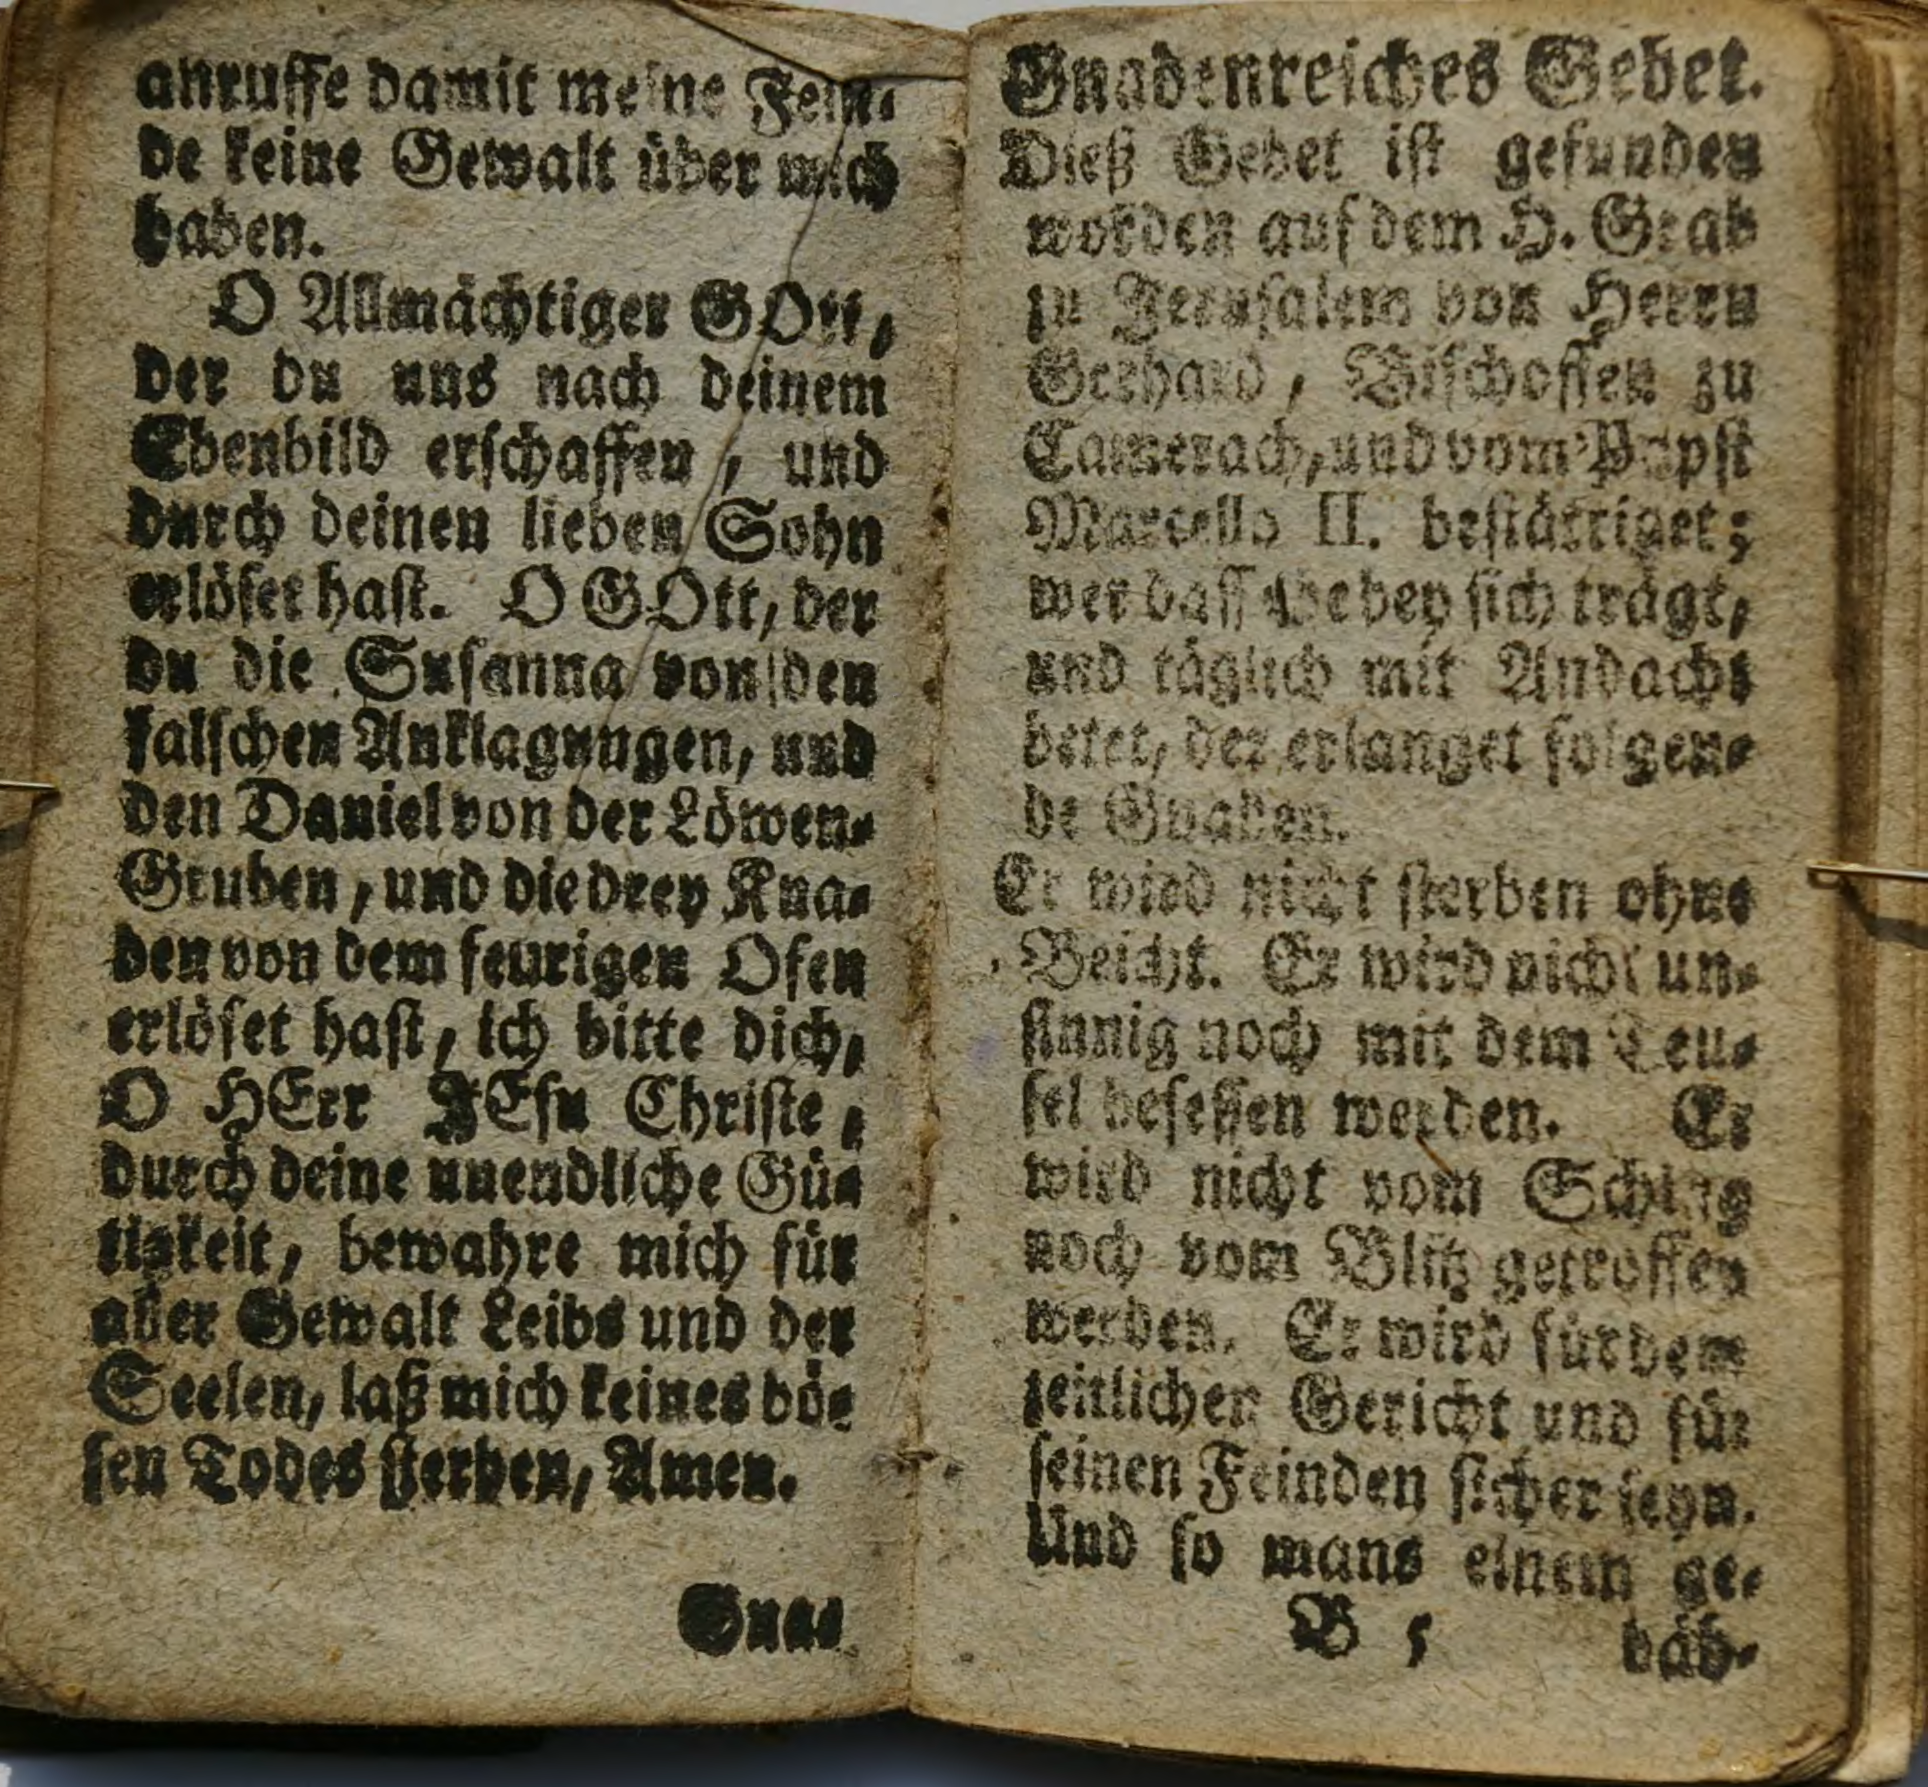 anruffe damit meine Fein⸗
de keine Gewalt über mich
haben.
O Allmächtiger GOtt,
der du uns nach deinem
Ebenbild erschaffen, und
durch deinen lieben Sohn
erlöset hast. O GOtt, der
du die Susanna von den
falschen Anklagungen, und
den Daniel von der Löwen⸗
Gruben, und die drey Kna⸗
ben von dem feurigen Ofen
erlöset hast, ich bitte dich,
O HErr JEsu Christe,
durch deine unendliche Gü⸗
tigkeit, bewahre mich für
aller Gewalt Leibs und der
Seelen, laß mich keines bö⸗
sen Todes sterben, Amen.
Gna⸗
Gnadenreiches Gebet.
Dieß Gebet ist gefunden
worden auf dem H. Grab
zu Jerusalem von Herrn
Gerhard, Bischoffen zu
Camerach, und vom Papst
Marcello II. bestättiget;
wer dasselbe bey sich trägt,
und täglich mit Andacht
betet, der erlanget folgen⸗
de Gnaden.
Er wird nicht sterben ohne
Beicht. Er wird nicht un⸗
sinnig noch mit dem Teu⸗
fel besessen werden. Er
wird nicht vom Schlag
noch vom Blitz getroffen
werden. Er wird für dem
zeitlichen Gericht und für
seinen Feinden sicher seyn.
Und so mans einem ge⸗
B 5 bäh⸗